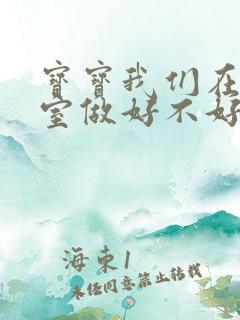 宝宝我们在
室做好不好
海束1
未经同意禁止转载